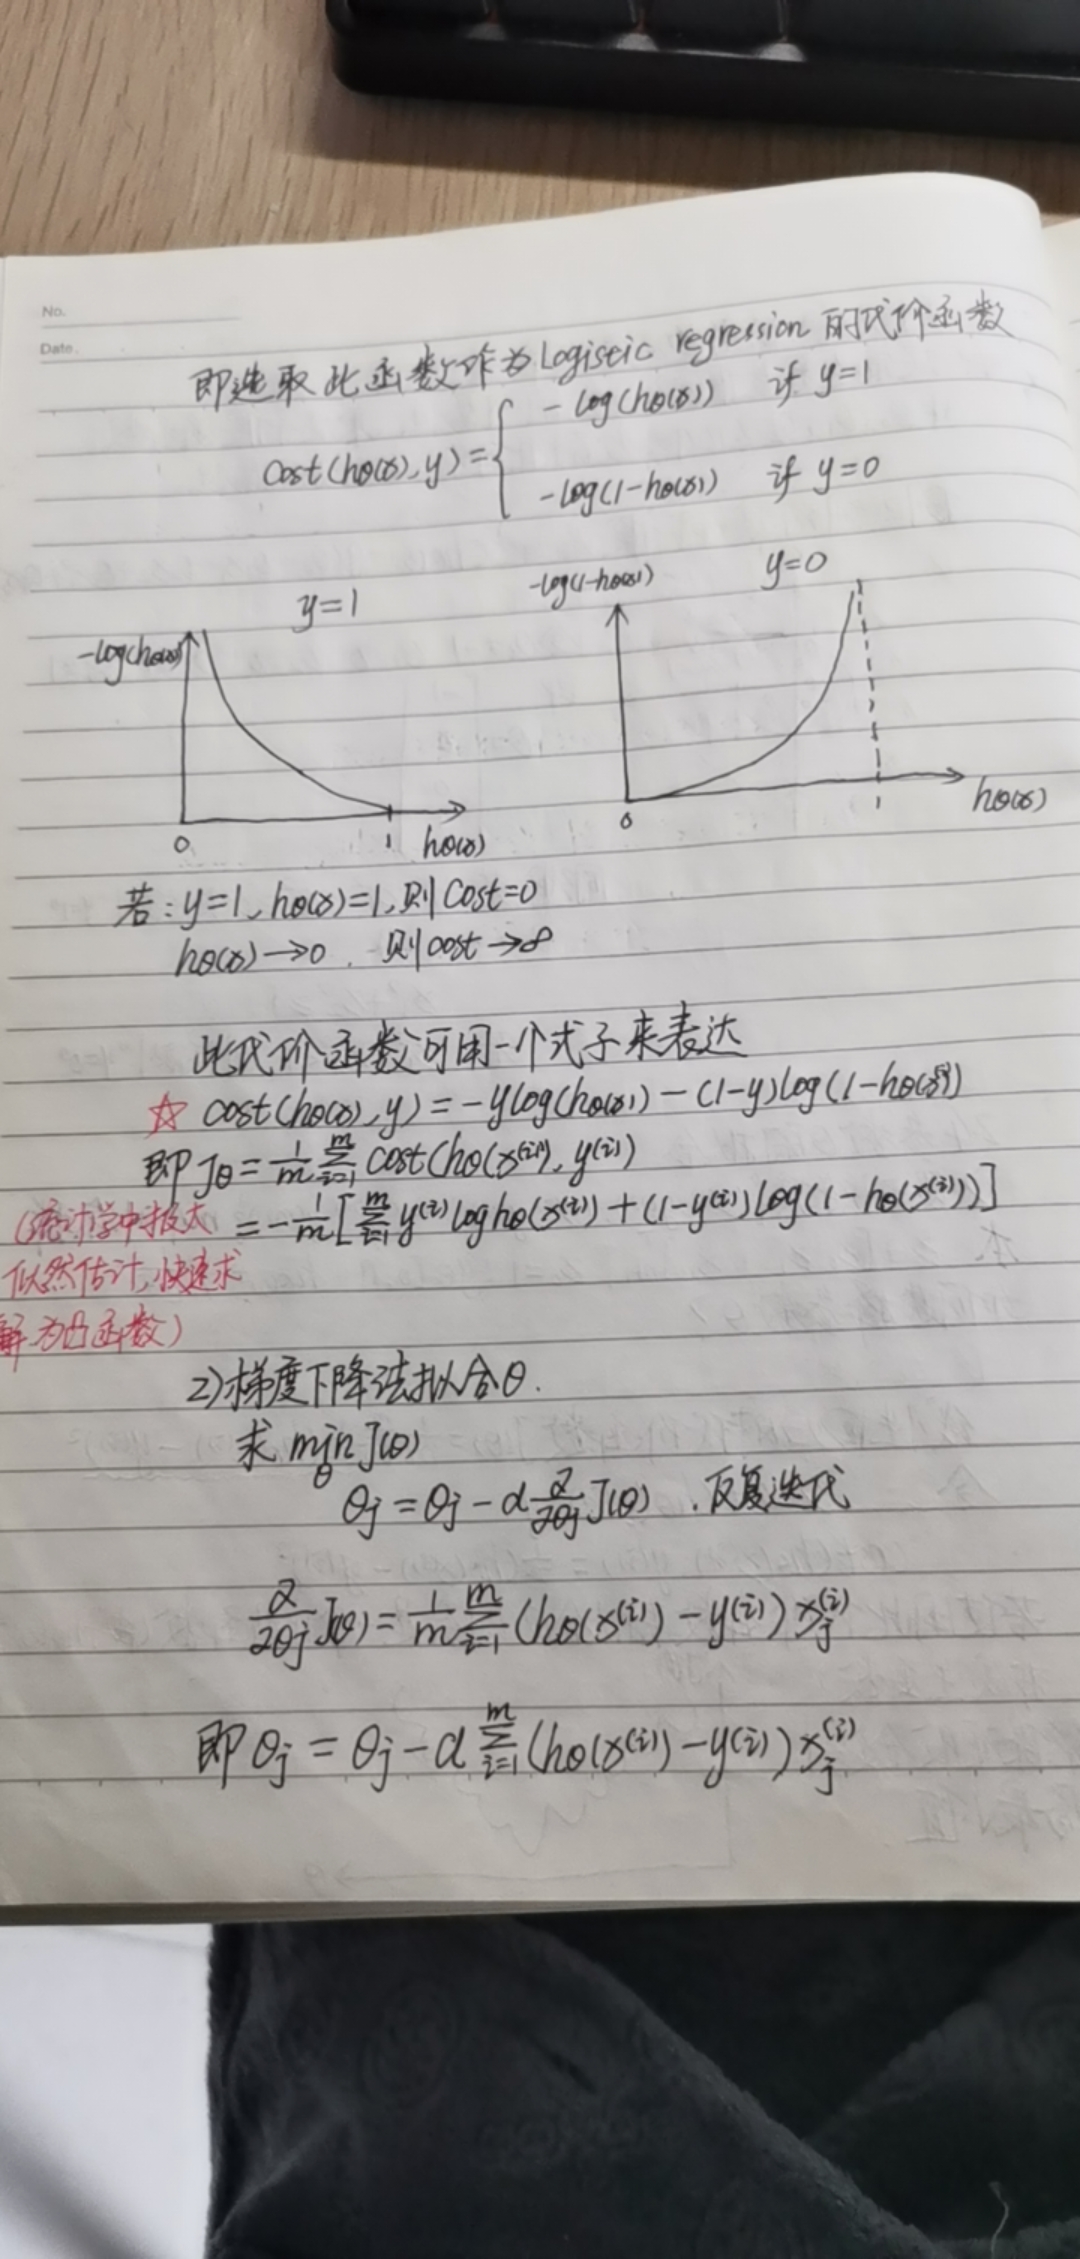 No.
Date.
即选取此函数作为Logistic regression的代价函数
cost(hθ(x),y)={ -log(hθ(x)) if y=1
-log(1-hθ(x)) if y=0
y=1
-log(hθ(x))
0 1 hθ(x)
y=0
-log(1-hθ(x))
0 1 hθ(x)
若:y=1,hθ(x)=1,则cost=0
hθ(x)→0, 则cost→∞
此代价函数可用一个式子来表达
☆ cost(hθ(x),y)=-ylog(hθ(x))-(1-y)log(1-hθ(x))
即Jθ=1/m Σ_{i=1}^{m} cost(hθ(x^(i)), y^(i))
=-1/m[Σ_{i=1}^{m} y^(i) log hθ(x^(i))+(1-y^(i))log(1-hθ(x^(i)))]
(统计学中极大
似然估计,快速求
解为凸函数)
2)梯度下降法拟合θ.
求 min_θ J(θ)
θj=θj-α ∂/∂θj J(θ) ,反复迭代
∂/∂θj J(θ)=1/m Σ_{i=1}^{m} (hθ(x^(i))-y^(i))x_j^(i)
即θj=θj-α Σ_{i=1}^{m} (hθ(x^(i))-y^(i))x_j^(i)